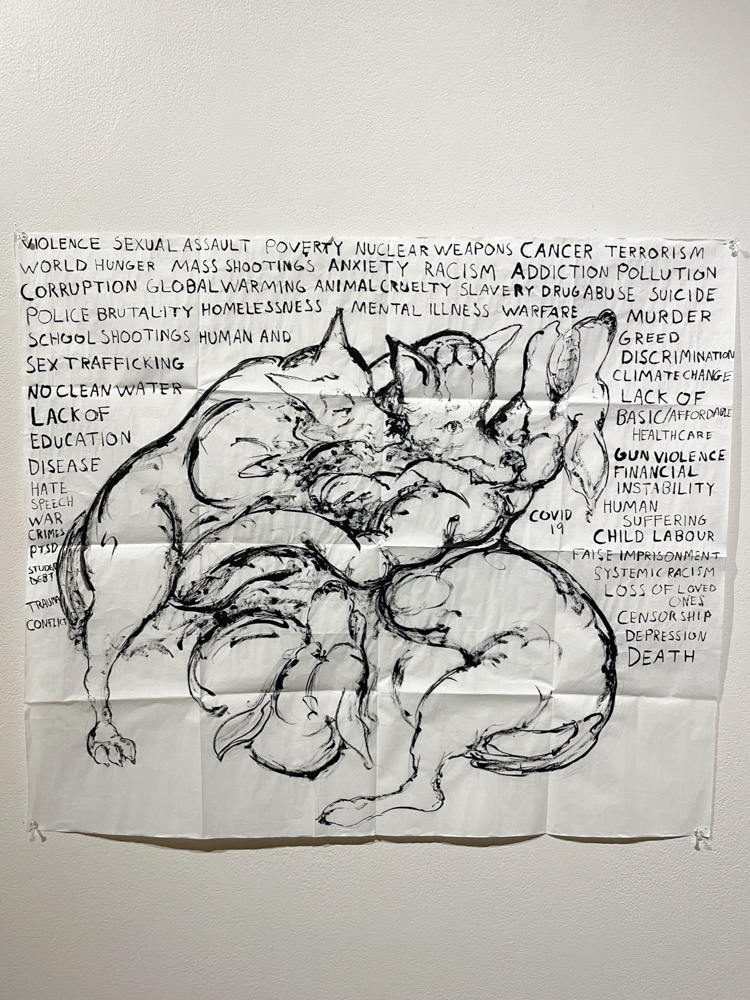 VIOLENCE SEXUAL ASSAULT POVERTY NUCLEAR WEAPONS CANCER TERRORISM
WORLD HUNGER MASS SHOOTINGS ANXIETY RACISM ADDICTION POLLUTION
CORRUPTION GLOBAL WARMING ANIMAL CRUELTY SLAVERY DRUG ABUSE SUICIDE
POLICE BRUTALITY HOMELESSNESS MENTAL ILLNESS WARFARE
SCHOOL SHOOTINGS HUMAN AND
SEX TRAFFICKING
NO CLEAN WATER
LACK OF
EDUCATION
DISEASE
HATE
SPEECH
WAR
CRIMES
PTSD
STUDENT
DEBT
TRAUMA
CONFLICT
MURDER
GREED
DISCRIMINATION
CLIMATE CHANGE
LACK OF
BASIC/AFFORDABLE
HEALTHCARE
GUN VIOLENCE
FINANCIAL
INSTABILITY
HUMAN
SUFFERING
CHILD LABOUR
FALSE IMPRISONMENT
SYSTEMIC RACISM
LOSS OF LOVED
ONES
CENSORSHIP
DEPRESSION
DEATH
COVID
19